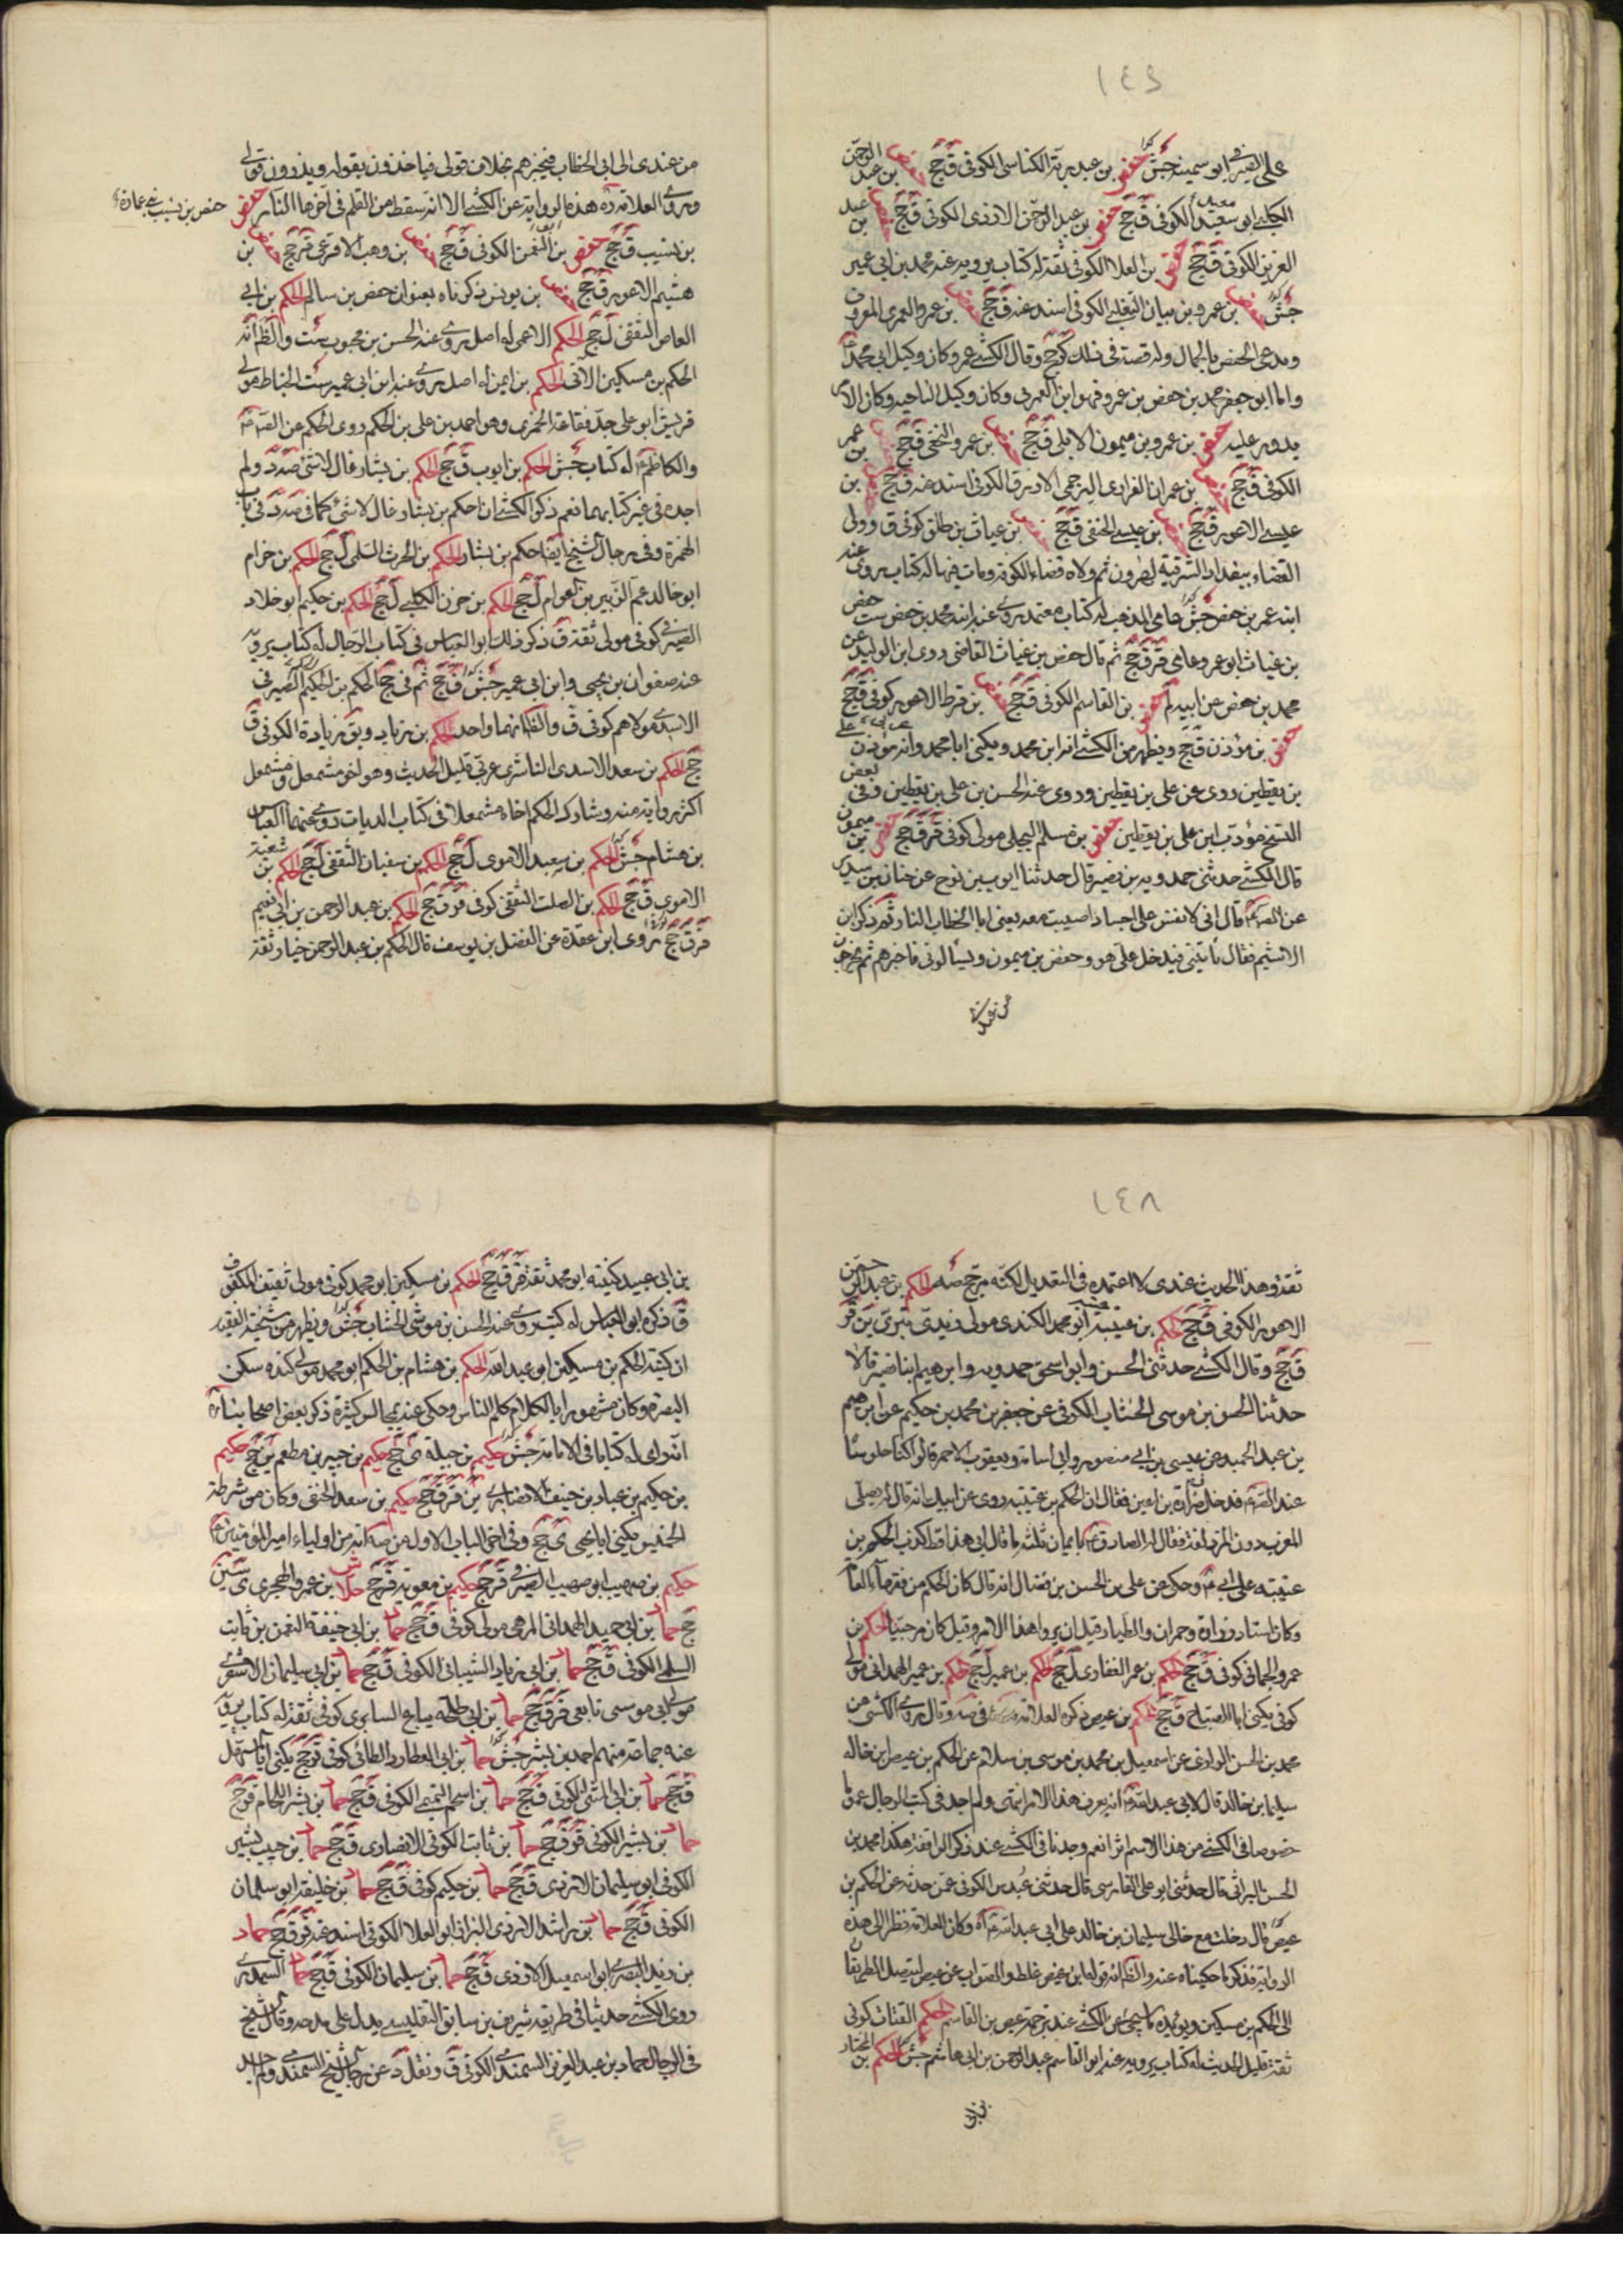 ١٤٩
على الصيرفى ابو سمينة جش حفص بن عبد ربه الكناسى الكوفى ق جج حفص بن عبد الرحمن
الكلبى ابو سعيد الكوفى ق جج حفص بن عبد الرحمن الازدى الكوفى ق جج حفص بن عبد
العزيز الكوفى ق جج حفص بن العلا الكوفى ثقة له كتاب يرويه عنه محمد بن ابى عمير
جش حفص بن عمرو بن بيان التغلبى الكوفى اسند عنه ق جج حفص بن عمرو العمرى المعروف
ويدعى الحفص بالجمال وله قصة فى ذلك كر جج وقال الكشى عمرو كان وكيل ابى محمد
واما ابو جعفر محمد بن حفص بن عمرو فهو ابن العمرى وكان وكيل الناحيه وكان الامر
يدور عليه حفص بن عمرو بن ميمون الابلى ق جج حفص بن عمرو النخعى ق جج حفص بن عمر
الكوفى ق جج حفص بن عمران الفزارى البرجمى الازرق الكوفى اسند عنه ق جج حفص بن
عيسى الاعور ق جج حفص بن عيسى الحنفى ق جج حفص بن غياث بن طلق كوفى ق وولى
القضاء ببغداد الشرقية لهرون ثم ولاه قضاء الكوفة ومات فيها له كتاب يروى عنه
ابنه عمر بن حفص جش عامى المذهب له كتاب معتمد روى عنه ابنه محمد بن حفص ست حفص
بن غياث ابو عمرو عامى قر ق جج ثم قال حفص بن غياث القاضى روى ابن الوليد عن
محمد بن حفص عن ابيه لم حفص بن القاسم الكوفى ق جج حفص بن قرط الاعور كوفى ق جج
حفص بن مؤذن ق جج ويظهر من الكشى انه ابن محمد ويكنى ابا محمد وانه مؤذن على
بن يقطين روى عن على بن يقطين وروى عنه الحسن بن على بن يقطين وفى بعض
النسخ مؤدب ابن على بن يقطين حفص بن مسلم البجلى مولى كوفى قر ق جج حفص بن ميمون
قال الكشى حدثنى حمدويه بن نصير قال حدثنا ايوب بن نوح عن حنان بن سدير
عن الص قال انى لانفس على اجساد اصيبت معه يعنى ابا الخطاب النار ثم ذكر ابن
الاشيم فقال ياتينى فيدخل على هو وحفص بن ميمون ويسألونى فاخبرهم ثم يخرجون
من عندى الى ابى الخطاب فيخبرهم بخلاف قولى فياخذون بقوله ويذرون قولى
وروى العلامة ره هذه الرواية عن الكشى الا انه سقط من القلم فى آخرها النار حفص
حفص بن نسيب بن عمارة
بن نسيب ق جج حفص بن النعمن الكوفى ق جج حفص بن وهب الاقرعى ق جج حفص بن
هشيم الاعور ق جج حفص بن يونس ذكرناه بعنوان حفص بن سالم الحكم بن ابى
العاص الثقفى ل جج الحكم الاعمى له اصل روى عنه الحسن بن محبوب ست والظ انه
الحكم بن مسكين الآتى الحكم بن ايمن له اصل روى عنه ابن ابى عمير ست الحناط مولى
قريش ابو على جد فقاعة الخمرى وهو احمد بن على بن الحكم روى الحكم عن الص
والكاظم له كتاب جش الحكم بن ايوب ق جج الحكم بن بشار غال لاشئ صه د ولم
اجده فى غير كتابهما نعم ذكر الكشى ان احكم بن بشار غال لاشئ كما فى صه د فى باب
الهمزة وفى رجال الشيخ ايضا حكم بن بشار الحكم بن الحرث السلمى ل جج الحكم بن حزام
ابو خالد عم الزبير بن العوام ل جج الحكم بن حزن الكلبى ل جج الحكم بن حكيم ابو خلاد
الصيرفى كوفى مولى ثقة ق ذكر ذلك ابو العباس فى كتاب الرجال له كتاب يرويه
عنه صفوان بن يحيى وابن ابى عمير جش ق جج ثم فى جج الحكم بن الحكيم الصيرفى
الاسدى مولاهم كوفى ق والظ انهما واحد الحكم بن زياد ويق زيادة الكوفى ق
جج الحكم بن سعد الاسدى الناشرى عربى قليل الحديث وهو اخو مشمعل ومشمعل
اكثر رواية منه وشارك الحكم اخاه مشمعلا فى كتاب الديات روى عنهما العباس
بن هشام جش الحكم بن سعيد الاموى ل جج الحكم بن سفيان الثقفى ل جج الحكم بن شعبة
الاموى ق جج الحكم بن الصلت الثقفى كوفى قر ق جج الحكم بن عبد الرحمن بن ابى نعيم
قر ق جج روى ابن عقدة عن الفضل بن يوسف قال الحكم بن عبد الرحمن خيار ثقة
١٤٨
ثقة وهذا الحديث عندى لا اعتمده فى التعديل لكنه مرجح صه الحكم بن عبد الرحمن
الاعور الكوفى ق جج الحكم بن عتيبة ابو محمد الكندى مولى زيدى بترى ين قر
ق جج وقال الكشى حدثنى الحسن وابو اسحق حمدويه وابرهيم ابنا نصير قالا
حدثنا الحسن بن موسى الخشاب الكوفى عن جعفر بن محمد بن حكيم عن ابرهيم
بن عبد الحميد عن عيسى بن ابى منصور وابى اسامة ويعقوب الاحمر قالوا كنا جلوسا
عند الص فدخل زرارة بن اعين فقال ان الحكم بن عتيبة روى عن ابيك انه قال له صلى
المغرب دون المزدلفة فقال له الصادق بايمان ثلثة ما قال ابى هذا قط كذب الحكم بن
عتيبة على ابى وحكى عن على بن الحسن بن فضال انه قال كان الحكم من فقهاء العامة
وكان استاد زرارة وحمران والطيار قبل ان يروا هذا الامر وقيل كان مرجئيا الحكم بن
عمرو الجمانى كوفى ق جج الحكم بن عمر الغفارى ل جج الحكم بن عمير ل جج الحكم بن عمير الهمدانى مولى
كوفى يكنى ابا الصباح ق جج الحكم بن عيص ذكره العلامة فى صه وقال روى الكشى عن
محمد بن الحسن البراثى عن اسمعيل بن محمد بن موسى بن سلام عن الحكم بن عيص ابن خالة
سليمان بن خالد قال لابى عبد الله انه يعرف هذا الامر انتهى ولم اجد فى كتب الرجال عموما
خصوصا فى الكشى من هذا الاسم اثرا نعم وجدنا فى الكشى عند ذكر الرافضة هكذا محمد بن
الحسن البراثى قال حدثنى ابو على الفارسى قال حدثنى عبدس الكوفى عمن حدثه عن الحكم بن
عيص قال دخلت مع خالى سليمان بن خالد على ابى عبد الله اه وكان العلامة نظر الى هذه
الرواية فذكر ما حكيناه عنه والظ انه قوله ابن عيص غلط والصواب عن عيص ليتصل الطريقان
الى الحكم بن مسكين ويؤيده ما سيجئ عن الكشى عند ترجمة عيص بن القاسم الحكم القتات كوفى
ثقة قليل الحديث له كتاب يرويه عنه ابو القاسم عبد الرحمن بن ابى هاشم جش الحكم بن المختار
بن ابى
بن ابى عبيد كنيته ابو محمد ثقة قر ق جج الحكم بن مسكين ابو محمد كوفى مولى ثقيف المكفوف
ق ذكره ابو العباس له كتب روى عنه الحسن بن موسى الخشاب جش ويظهر من مشيخة الفقيه
ان كنية الحكم بن مسكين ابو عبد الله الحكم بن هشام بن الحكم ابو محمد مولى كندة سكن
البصرة وكان مشهورا بالكلام كلم الناس وحكى عنه مجالس كثيرة ذكر بعض اصحابنا ره
انه راى له كتابا فى الامامة جش حكيم بن جبلة ى جج حكيم بن جبير بن مطعم ين جج حكيم
بن حكيم بن عباد بن حنيف الانصارى ين قر ق جج حكيم بن سعد الحنفى وكان من شرطة
الخميس يكنى ابا يحيى ى جج وفى آخر الباب الاول من صه انه من اولياء امير المؤمنين
حكيم بن صهيب ابو صهيب الصيرفى قر جج حكيم بن معوية قر جج حلاس بن عمرو الهجرى ى سين
جج حماد بن ابى حميد الهمدانى المرهبى مولى كوفى ق جج حماد بن ابى حنيفة النعمن بن ثابت
السلمى الكوفى ق جج حماد بن ابى زياد الشيبانى الكوفى ق جج حماد بن ابى سليمان الاشعرى
مولى ابى موسى تابعى قر ق جج حماد بن ابى طلحة بياع السابرى كوفى ثقة له كتاب يرويه
عنه جماعة منهم احمد بن بشر جش حماد بن ابى العطارد الطائى كوفى ق جج يكنى ابا المستهل
ق جج حماد بن ابى المثنى الكوفى ق جج حماد بن اسحم التميمى الكوفى ق جج حماد بن بشر اللحام ق جج
حماد بن بشير الكوفى قر ق جج حماد بن ثابت الكوفى الانصارى ق جج حماد بن حبيب بشير
الكوفى ابو سليمان الازدى ق جج حماد بن حكيم كوفى ق جج حماد بن خليفة ابو سليمان
الكوفى ق جج حماد بن راشد الازدى البزاز ابو العلا الكوفى اسند عنه قر ق جج حماد
بن زيد البصرى ابو اسمعيل الازدى ق جج حماد بن سليمان الكوفى ق جج حماد السمندرى
روى الكشى حديثا فى طريقه شريف بن سابق التفليسى يدل على مدحه وقال الشيخ
فى الرجال حماد بن عبد العزيز السمندى الكوفى ق ونقل د عن رجال الشيخ السمندى ولم اجد